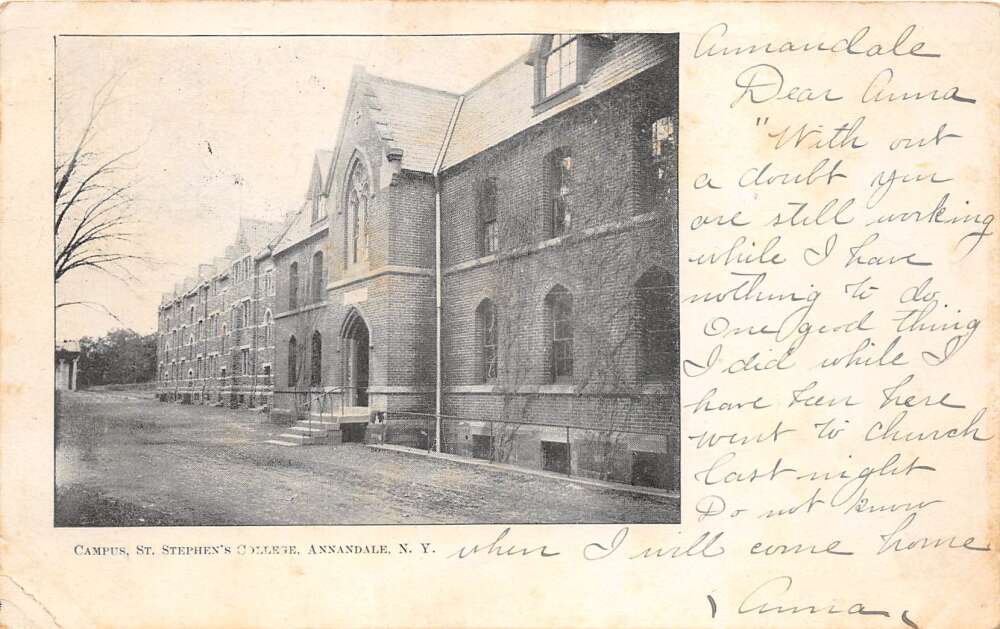 Annandale
Dear Anna
"With out
a doubt you
are still working
while I have
nothing to do.
One good thing
I did while I
have been here
went to church
last night
Do not know
when I will come home
Anna
CAMPUS, ST. STEPHEN'S COLLEGE, ANNANDALE, N. Y.